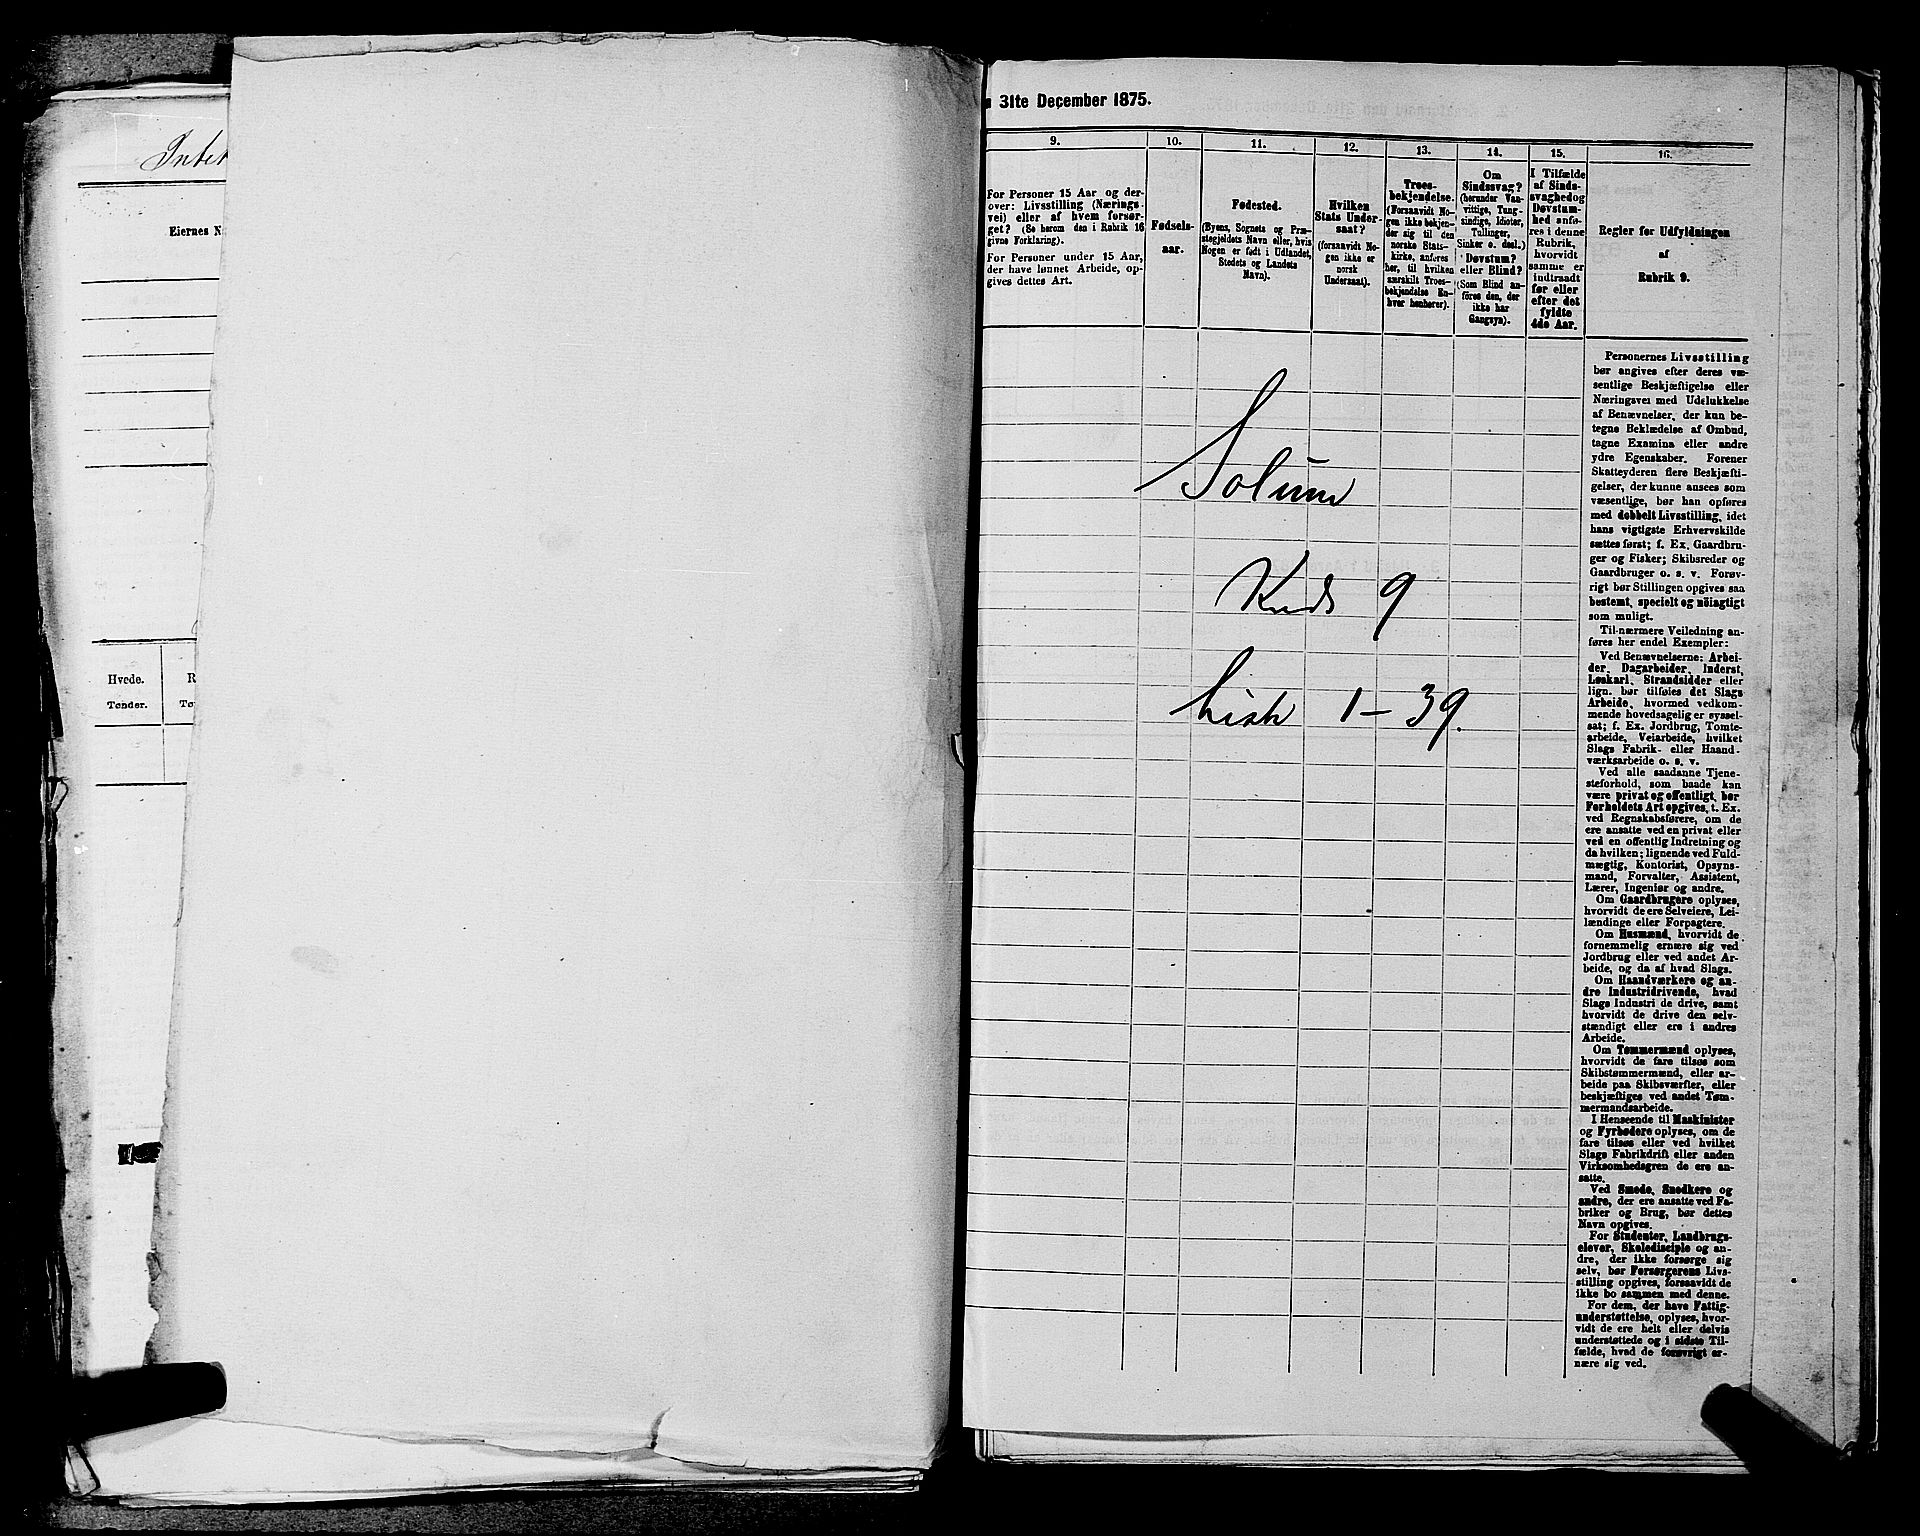 Eiernes
Hvede.
Tønder.
31te December 1875.
9.
For Personer 15 Aar og der-
over: Livsstilling (Nærings-
vei) eller af hvem forsør-
get? (Se herom den i Rubrik 16
givne Forklaring).
For Personer under 15 Aar,
der have lønnet Arbeide, op-
gives dettes Art.
10.
Fødsels-
aar.
11.
Fødested.
(Byens, Sognets og Præ-
stegjeldets Navn eller, hvis
Nogen er født i Udlandet,
Stedets og Landets
Navn).
12.
Hvilken
Stats Under-
saat?
(forsaavidt No-
gen ikke er
norsk
Undersaat).
13.
Troes-
bekjendelse.
(Forsaavidt No-
gen ikke bekjen-
der sig til den
norske Stats-
kirke, anføres
her, til hvilken
særskilt Troes-
bekjendelse En-
hver henhører).
14.
Om
Sindssvag?
(herunder Van-
vittige, Tung-
sindige, Idioter,
Tullinger,
Sinker o. desl.)
Døvstum?
eller Blind?
(Som Blind an-
føres den, der
ikke har
Gangsyn).
15.
I Tilfælde
af Sinds-
svaghed og
Døvstum-
hed anfø-
res i denne
Rubrik,
hvorvidt
samme er
indtraadt
før eller
efter det
fyldte
4de Aar.
16.
Regler for Udfyldningen
af
Rubrik 9.
Solum
Kreds 9
Liste 1 - 39.
Personernes Livsstilling
bør angives efter deres væ-
sentlige Beskjæftigelse eller
Næringsvei med Udelukkelse
af Benævnelser, der kun be-
tegne Beklædelse af Ombud,
tagne Examina eller andre
ydre Egenskaber. Forener
Skatteyderen flere Beskjæfti-
gelser, der kunne ansees som
væsentlige, bør han opføres
med dobbelt Livsstilling, idet
hans vigtigste Erhvervskilde
sættes først; f. Ex. Gaardbru-
ger og Fisker; Skibsreder og
Gaardbruger o. s. v. Forøv-
rigt bør Stillingen opgives saa
bestemt, specielt og nöiagtigt
som muligt.
Til nærmere Veiledning an-
føres her endel Exempler:
Ved Benævnelserne: Arbei-
der, Dagarbeider, Inderst,
Løskarl, Strandsidder eller
lign. bør tilføies det Slags
Arbeide, hvormed vedkom-
mende hovedsagelig er syssel-
sat; f. Ex. Jordbrug, Tomte-
arbeide, Veiarbeide, hvilket
Slags Fabrik- eller Haand-
værksarbeide o. s. v.
Ved alle saadanne Tjene-
steforhold, som baade kan
være privat og offentligt, bør
Forholdets Art opgives, t. Ex.
ved Regnskabsførere, om de
ere ansatte ved en privat eller
ved en offentlig Indretning og
da hvilken; lignende ved Fuld-
mægtig, Kontorist, Opsyns-
mand, Forvalter, Assistent,
Lærer, Ingeniør og andre.
Om Gaardbrugere oplyses,
hvorvidt de ere Selveiere, Lei-
lændinge eller Forpagtere.
Om Husmænd, hvorvidt de
fornemmelig ernære sig ved
Jordbrug eller ved andet Ar-
beide, og da af hvad Slags.
Om Haandværkere og an-
dre Industridrivende, hvad
Slags Industri de drive, samt
hvorvidt de drive den selv-
stændigt eller ere i andres
Arbeide.
Om Tømmermænd oplyses,
hvorvidt de fare tilsøs som
Skibstømmermænd, eller ar-
beide paa Skibsværfter, eller
beskjæftiges ved andet Tøm-
mermandsarbeide.
I Henseende til Maskinister
og Fyrbødere oplyses, om de
fare tilsøs eller ved hvilket
Slags Fabrikdrift eller anden
Virksomhedsgren de ere an-
satte.
Ved Smede, Snedkere og
andre, der ere ansatte ved Fa-
briker og Brug, bør dettes
Navn opgives.
For Studenter, Landbrugs-
elever, Skoledisciple og an-
dre, der ikke forsørge sig
selv, bør Forsørgerens Livs-
stilling opgives, forsaavidt de
ikke bo sammen med denne.
For dem, der have Fattig-
understøttelse, oplyses, hvor-
vidt de ere helt eller delvis
understøttede og i sidste Til-
fælde, hvad de forøvrigt er-
nære sig ved.